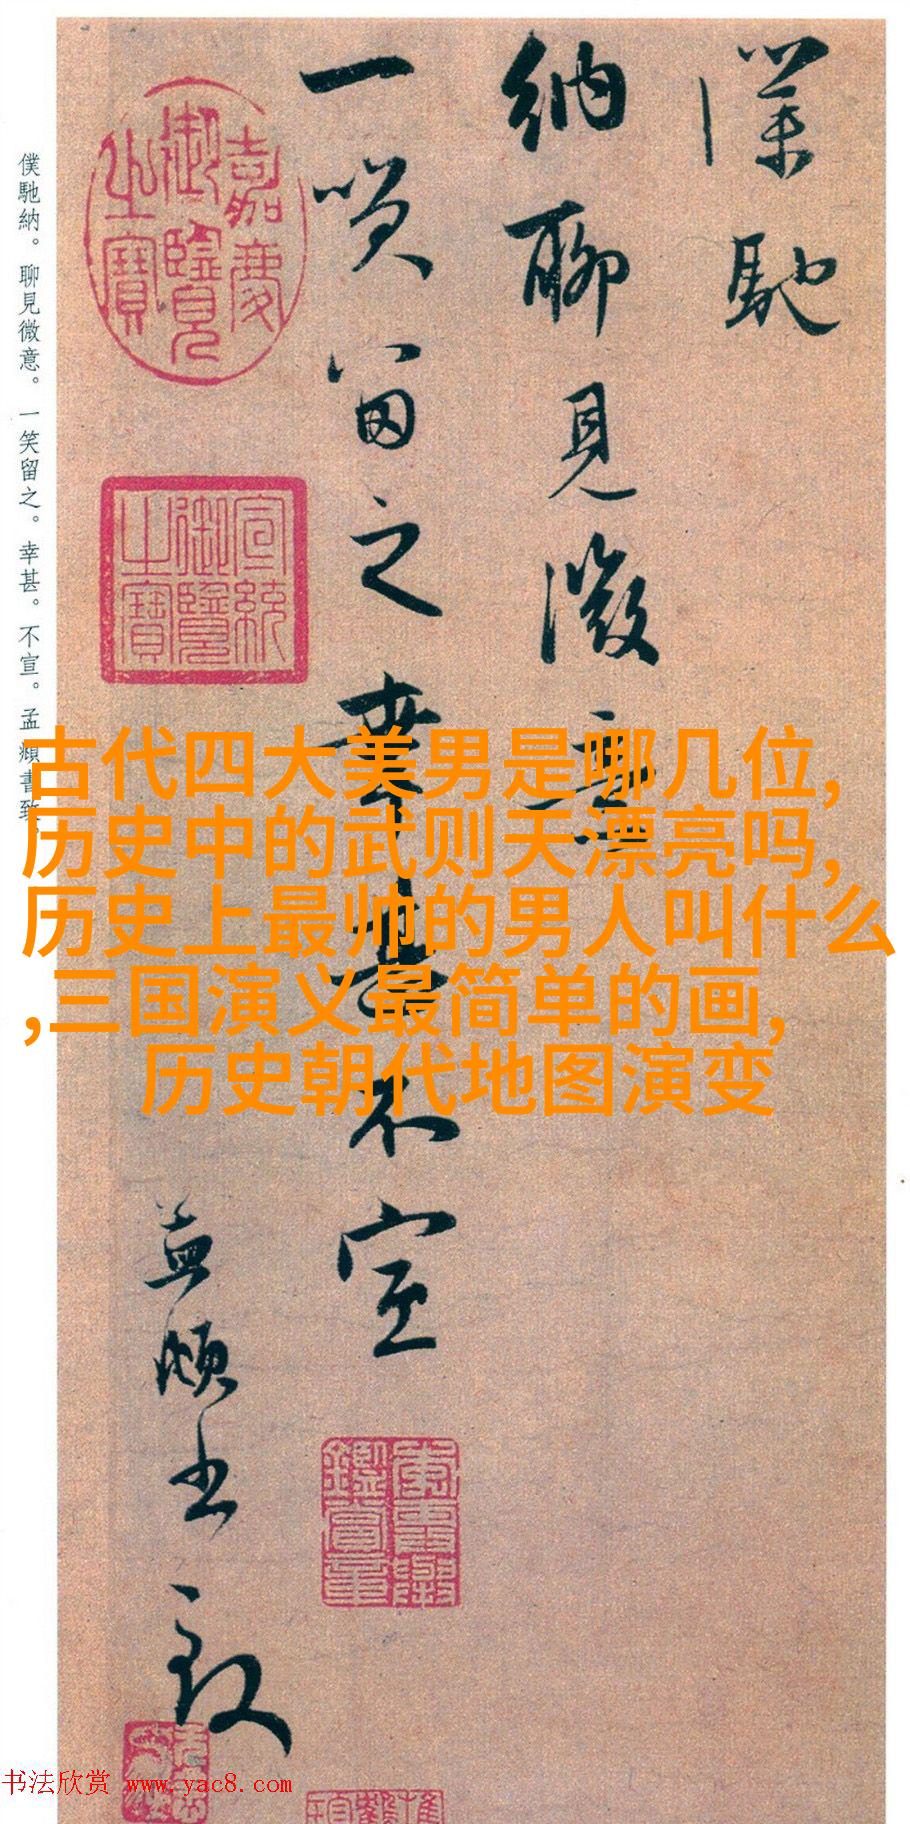 僕馳納。聊見微意。一笑留之。幸甚。不宣。孟頫書致。
僕馳
納聊見微意
一笑留之幸甚不宣
孟頫書致
嘉慶御覽之寶
宣統御覽之寶
古代四大美男是哪几位,
历史中的武则天漂亮吗,
历史上最帅的男人叫什么
,三国演义最简单的画,
历史朝代地图演变
书法欣赏 www.yac8.com